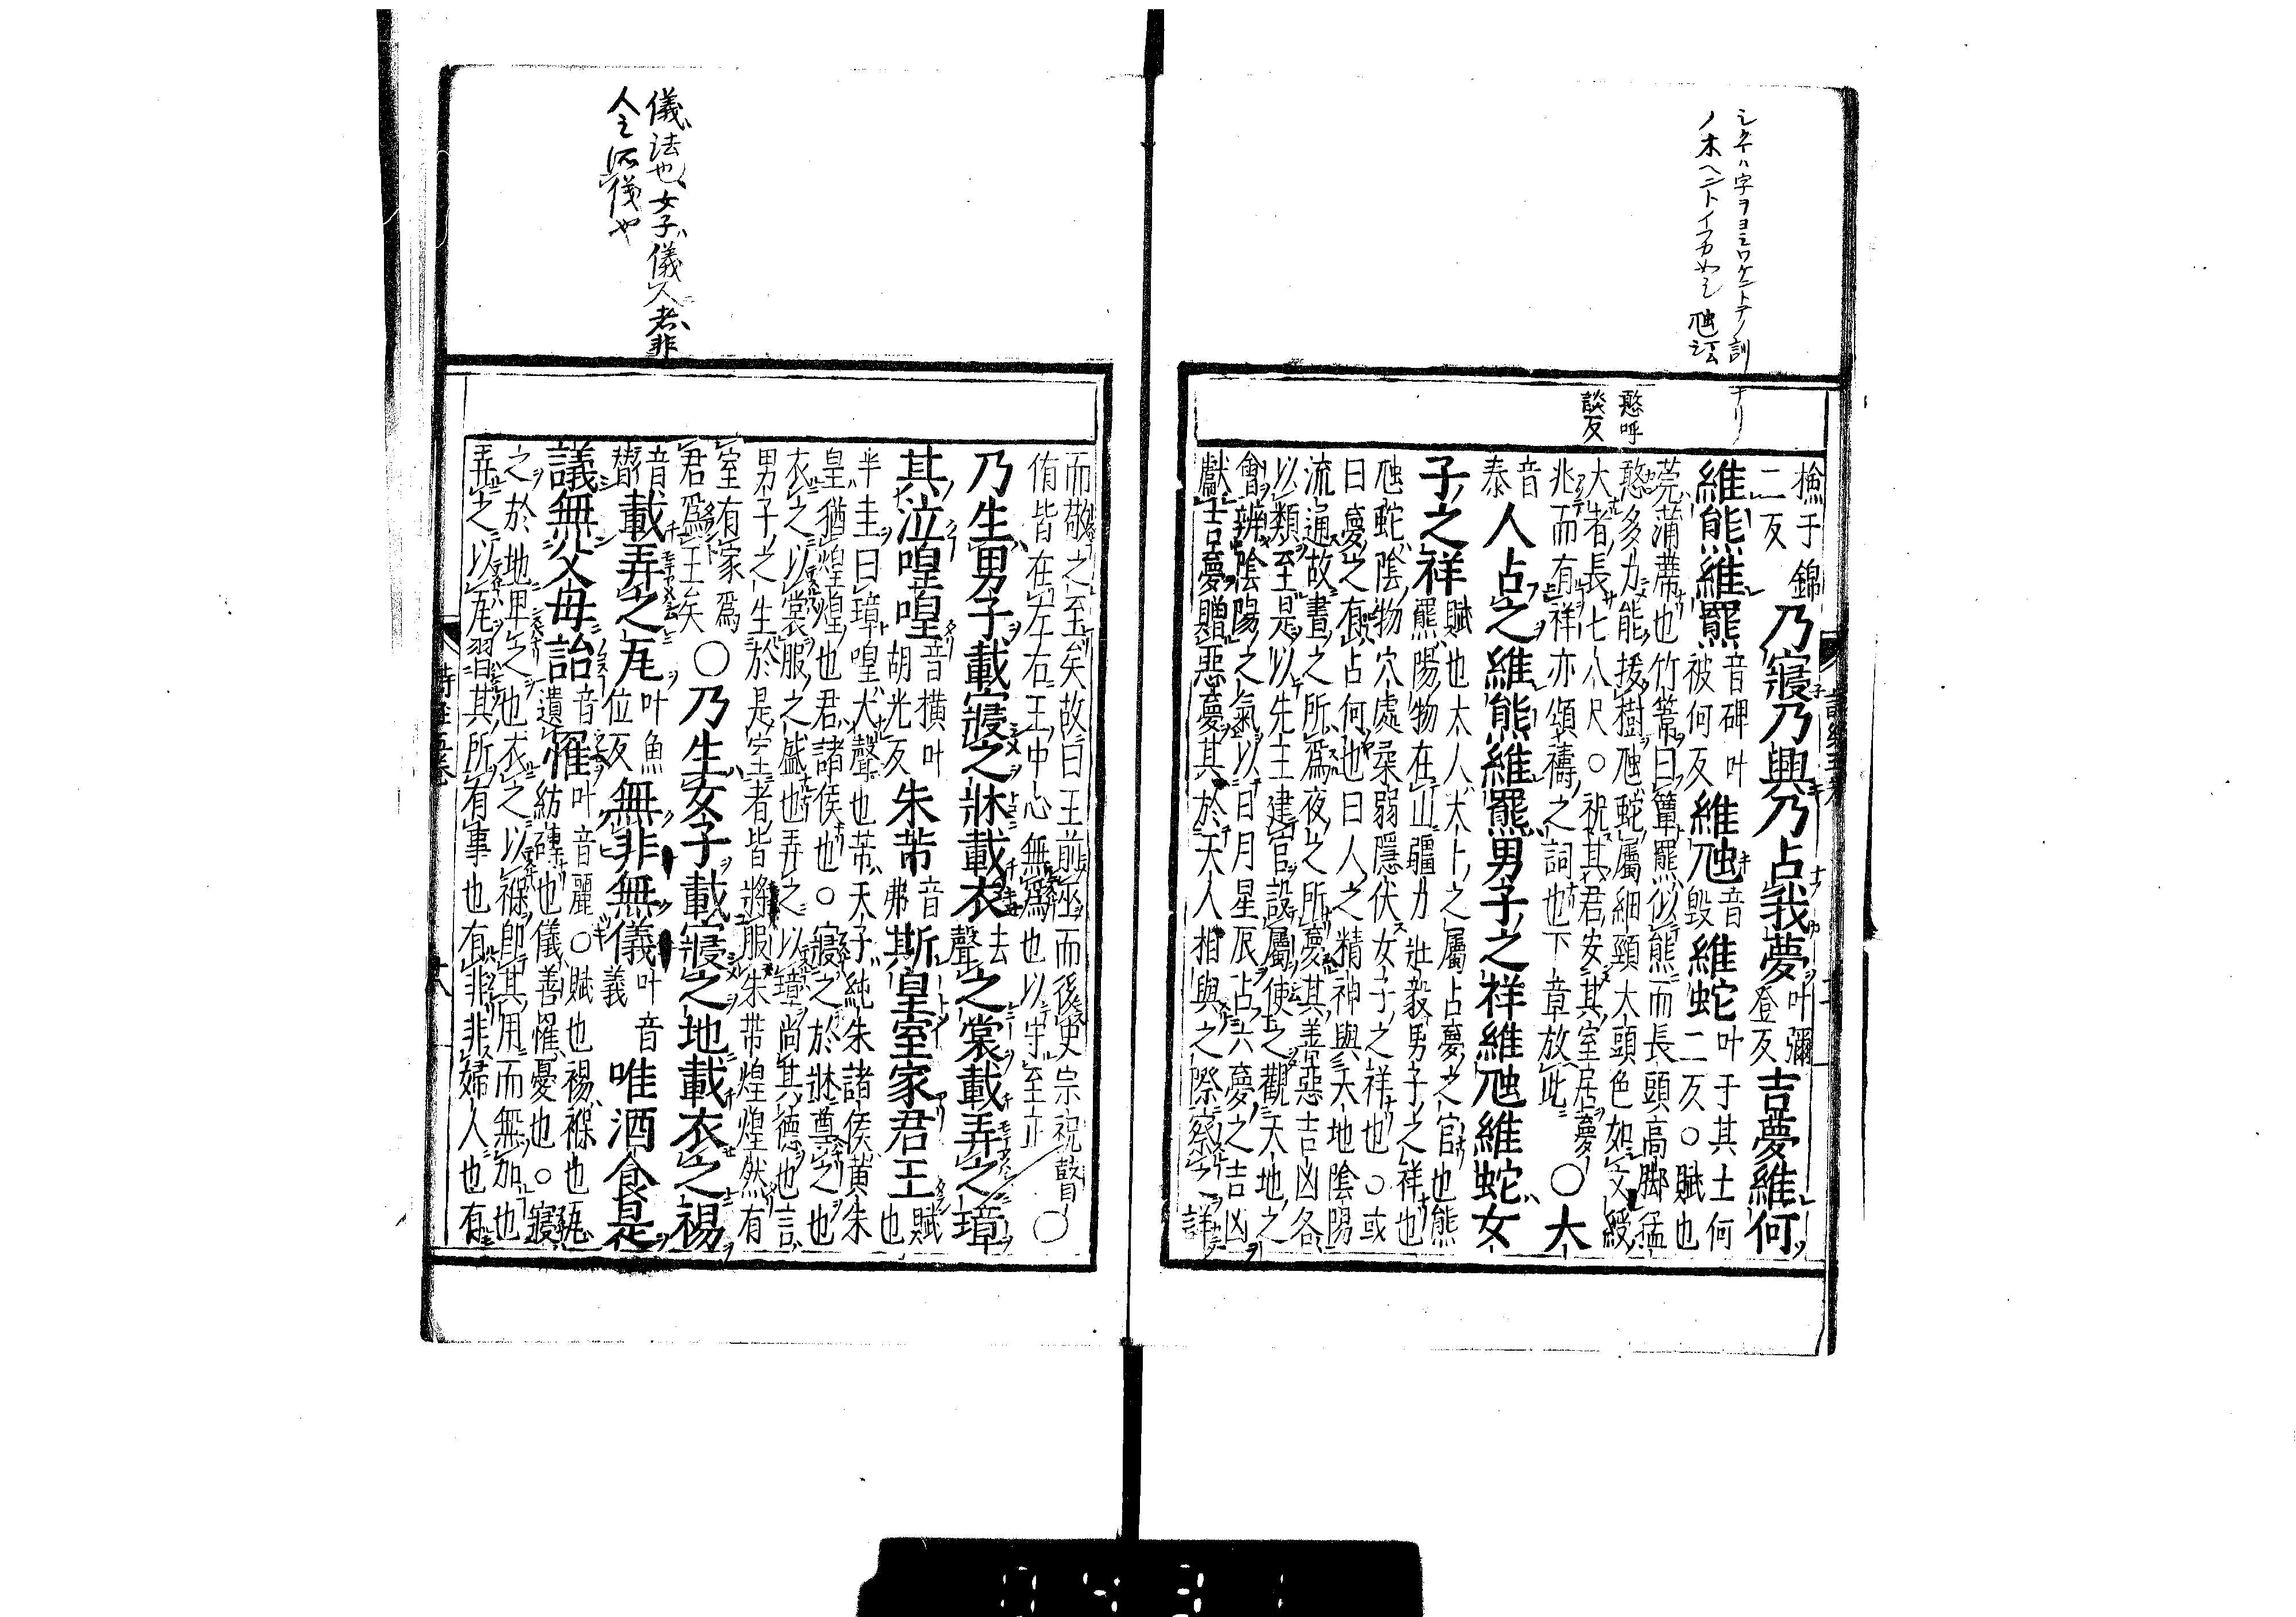 シタキハ字ヲヨミワケントテノ訓ナリ
ノ木ヘニトイフカ如シ虺云
憨呼
談反
撿于錦
二反
乃寢乃興乃占我夢
叶彌
登反
吉夢維何
維熊維羆
音碑叶
被何反
維虺
音
毀
維蛇
叶于其土何
二反○賦也
莞蒲蓆也竹葦曰簟羆似熊而長頭高脚猛
憨多力能援樹虺蛇屬細頸大頭色如文綬
大者長七八尺○祝其君安其室居夢
兆而有祥亦頌禱之詞也下章放此
○大
音
泰
人占之維熊維羆男子之祥維虺維蛇女
子之祥
賦也大人大卜之屬占夢之官也熊
羆陽物在山彊力壯毅男子之祥也
虺蛇陰物穴處柔弱隱伏女子之祥也○或
曰夢之有占何也曰人之精神與天地陰陽
流通故晝之所爲夜之所夢其善惡吉凶各
以類至是以先王建官設屬使之觀天地之
會辨陰陽之氣以日月星辰占六夢之吉凶
獻吉夢贈惡夢其於天人相與之際察之詳
儀法也女子儀人者非
人之所儀也
而敬之至矣故曰王前巫而後史宗祝瞽
侑皆在左右王中心無爲也以守至正
○
乃生男子載寢之牀載衣
去
聲
之裳載弄之璋
其泣喤喤
音橫叶
胡光反
朱芾
音
弗
斯皇室家君王
賦
也
半圭曰璋喤大聲也芾天子純朱諸侯黃朱
皇猶煌煌也君諸侯也○寢之於牀尊之也
衣之以裳服之盛也弄之以璋尚其德也言
男子之生於是室者皆將服朱芾煌煌然有
室有家爲
君爲王矣
○乃生女子載寢之地載衣之裼
音
替
載弄之瓦
叶魚
位反
無非無儀
叶音
義
唯酒食是
議無父母詒
音
遺
罹
叶音麗○賦也裼褓也瓦
紡磚也儀善罹憂也○寢
之於地卑之也衣之以褓卽其用而無加也
弄之以瓦習其所有事也有非非婦人也有